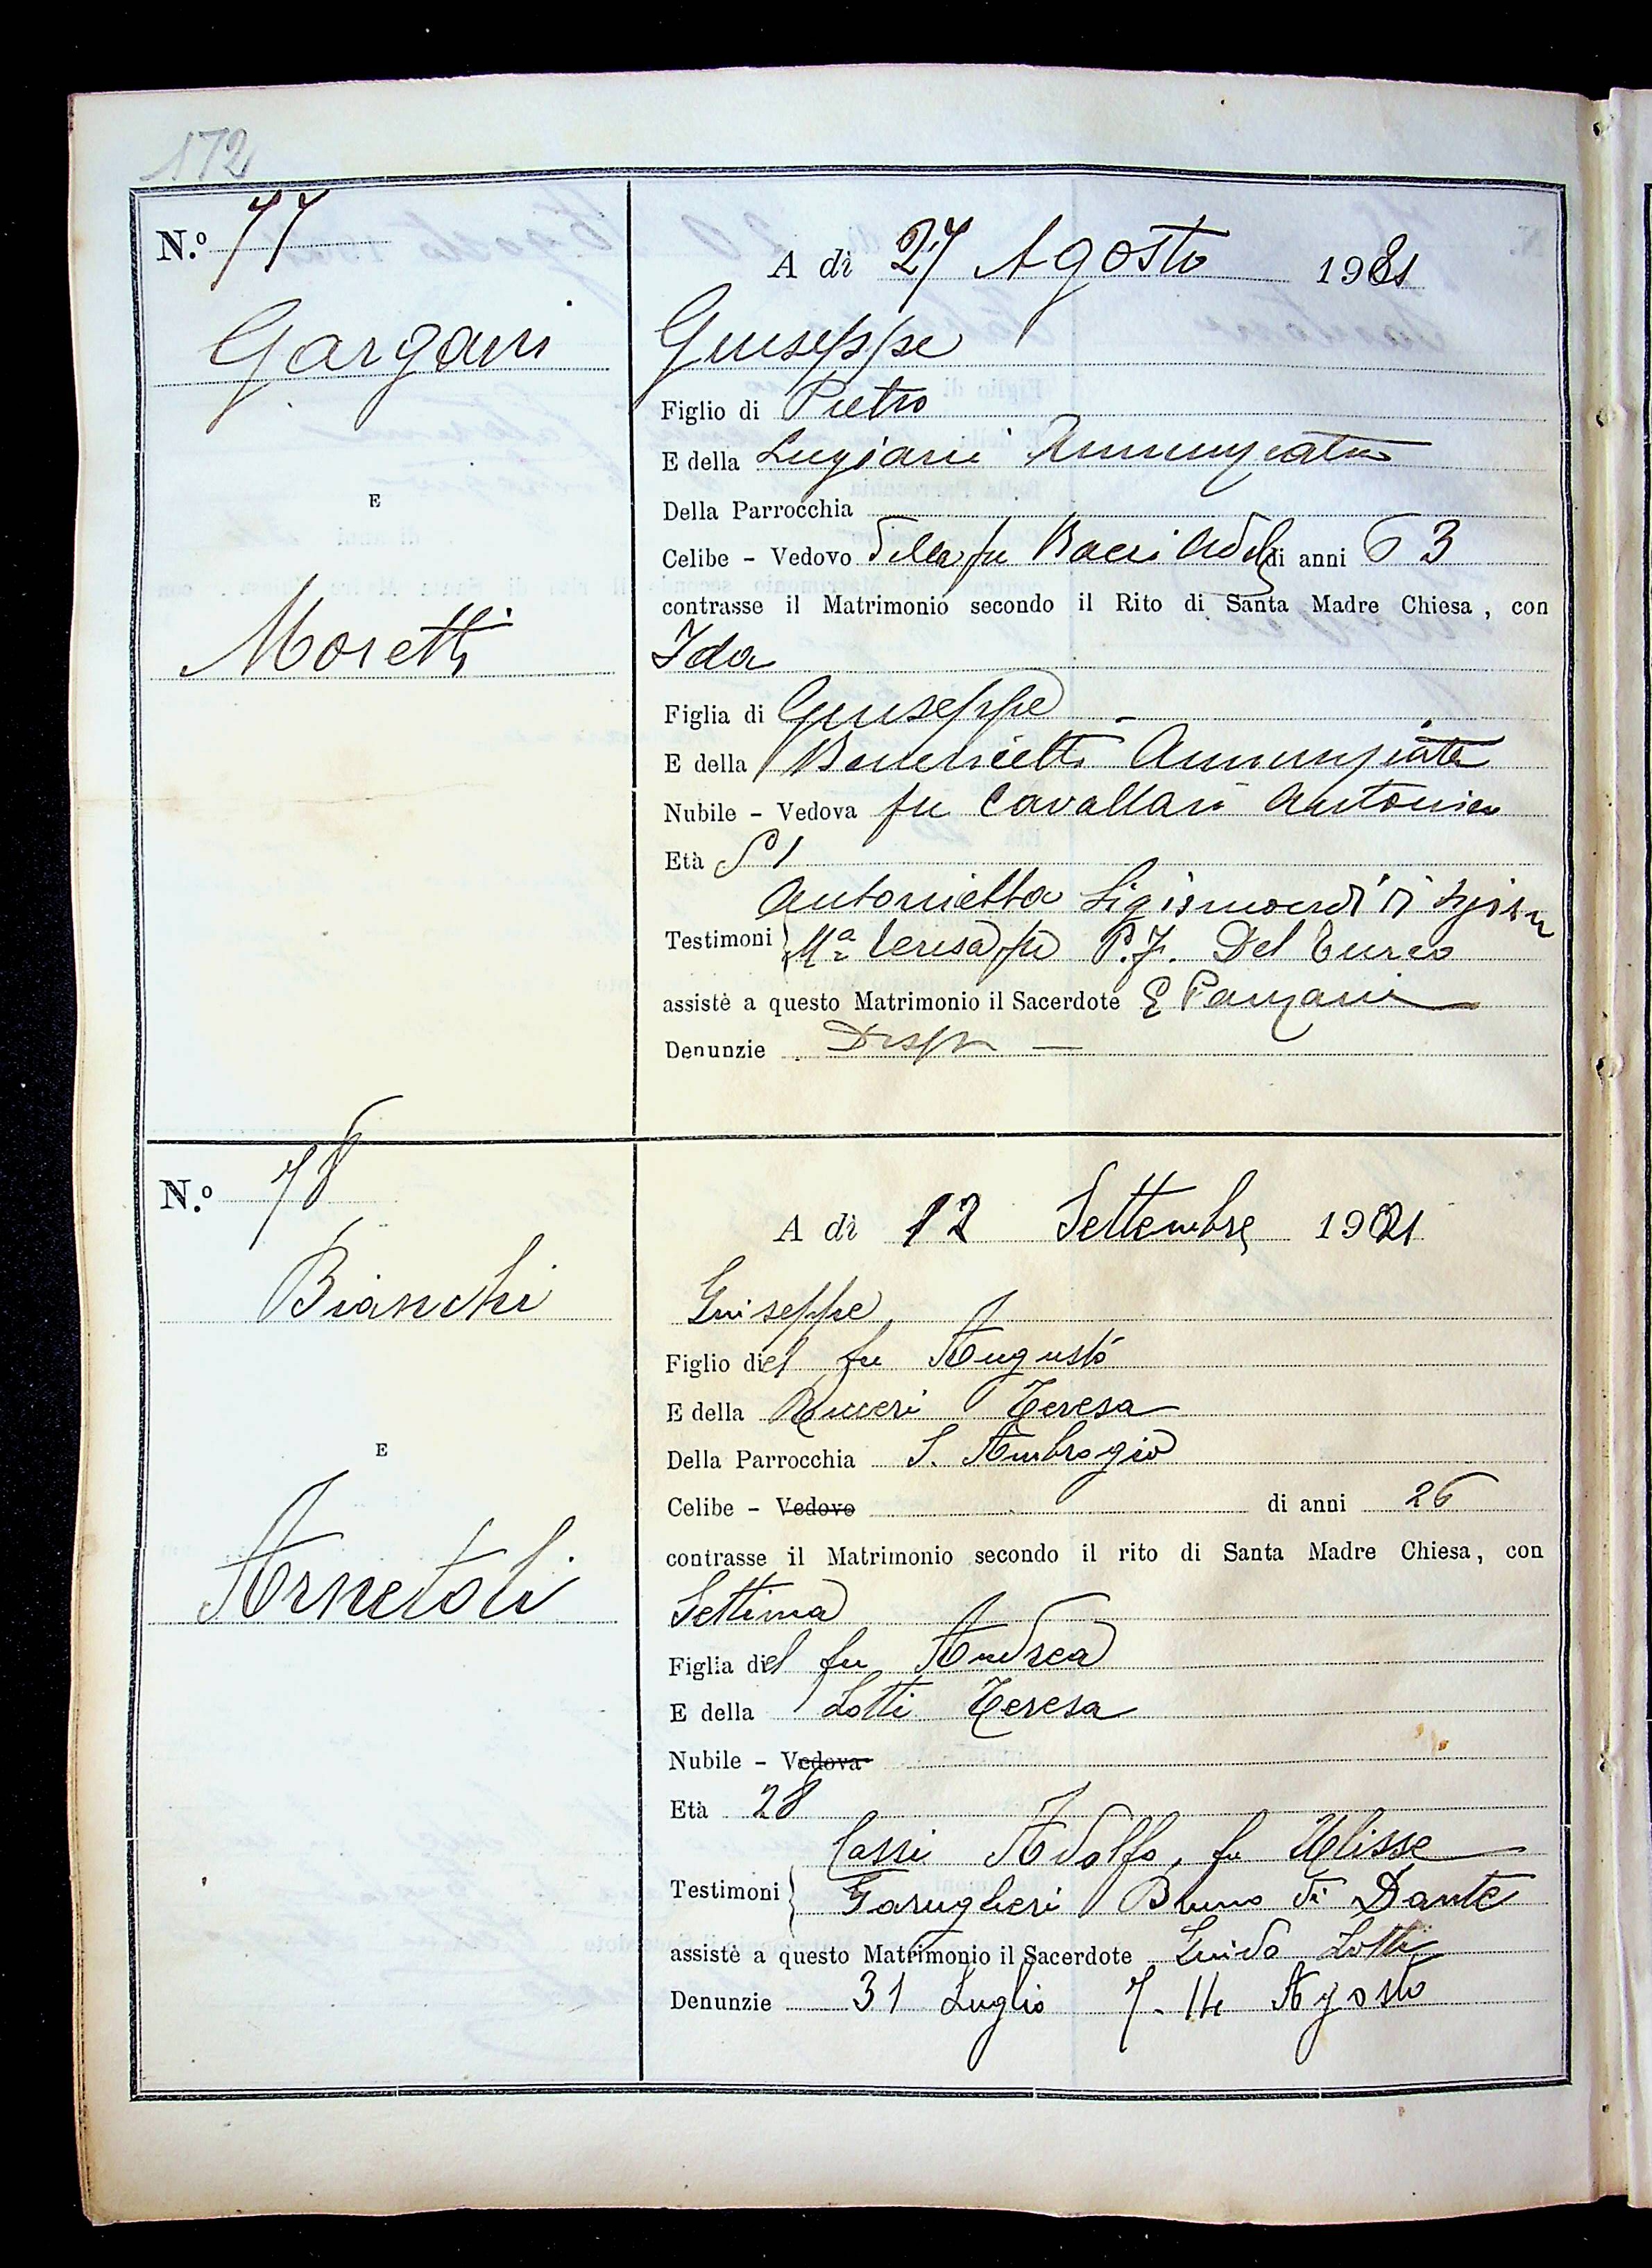 172
N.º 77
A dì 27 Agosto 1921
Gargani
Giuseppe
Figlio di Pietro
E della Lugiani Annunziata
E
Della Parrocchia
Celibe - Vedovo della fu Bacci Adele di anni 63
contrasse il Matrimonio secondo il Rito di Santa Madre Chiesa, con
Moretti
Ida
Figlia di Giuseppe
E della Benericetti Annunziata
Nubile - Vedova fu Cavallari Antonio
Età 51
Antonietta Sigismondi di
Testimoni Mª Teresa fu P. F. Del Turco
assistè a questo Matrimonio il Sacerdote E Panzani
Denunzie Disp
N.º 78
A dì 12 Settembre 1921
Bianchi
Giuseppe
Figlio del fu Augusto
E della Rucceri Teresa
E
Della Parrocchia S. Ambrogio
Celibe - Vedovo di anni 26
contrasse il Matrimonio secondo il rito di Santa Madre Chiesa, con
Arnetoli
Settima
Figlia del fu Andrea
E della Lotti Teresa
Nubile - Vedova
Età 28
Cassi Adolfo, fu Ulisse
Testimoni Garugheri Bruno di Dante
assistè a questo Matrimonio il Sacerdote Guido Lotti
Denunzie 31 Luglio 7 - 14 Agosto